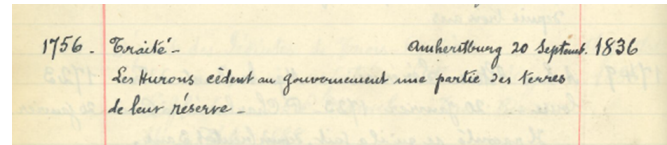 1756. Traité - Amherstburg 20 Septemb. 1836
Les Hurons cèdent au gouvernement une partie des terres
de leur réserve -